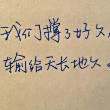 我们撑了好久
输给天长地久。